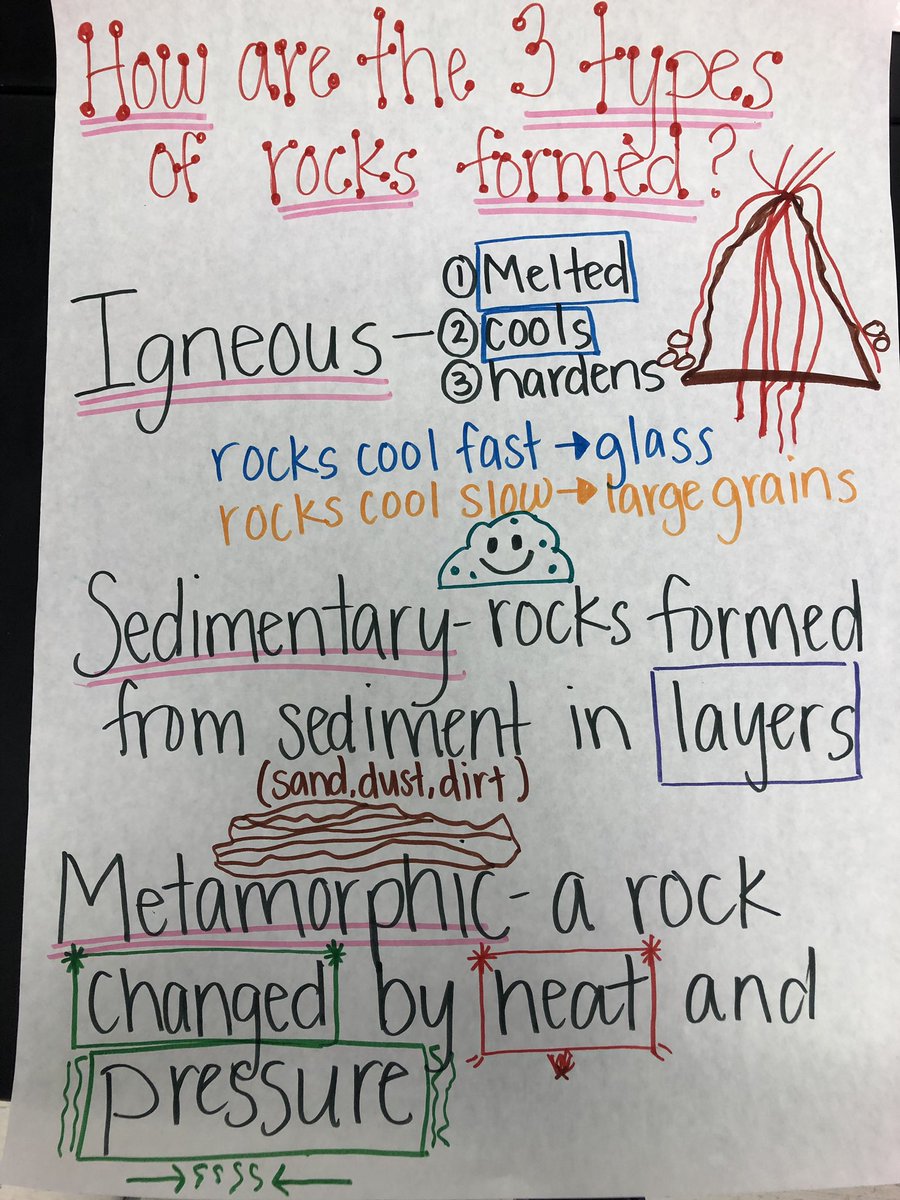 How are the 3 types
of rocks formed?
Igneous - ① Melted
② cools
③ hardens
rocks cool fast → glass
rocks cool slow → large grains
Sedimentary - rocks formed
from sediment in layers
(sand, dust, dirt)
Metamorphic - a rock
changed by heat and
pressure